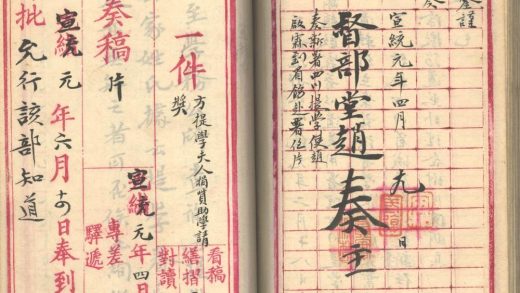 謹
奏
宣統元年四月 九 日
督部堂趙 奏主
奏新署四川提學使趙
啟霖到省飭赴署任片
看稿
繕摺
對讀
方提學夫人捐貲助學請
獎
一件
宣統元年四日
專差
驛遞
奏稿 片
宣統元年六月日奉到
批 允行該部知道